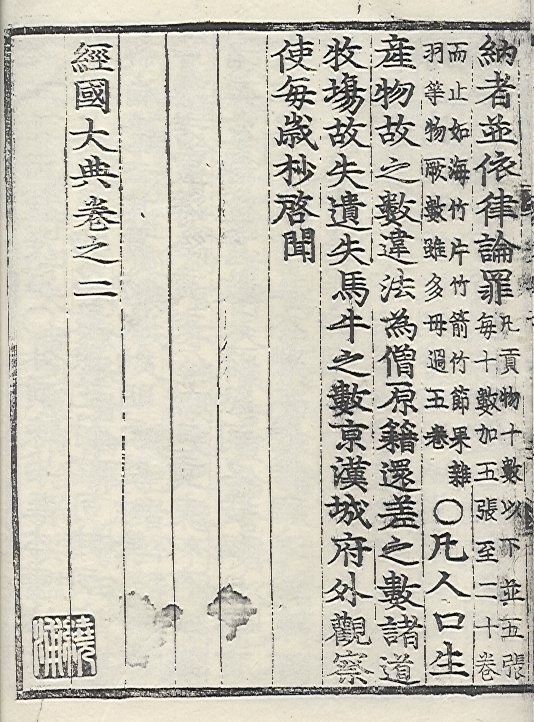 納者並依律論罪凡貢物十數以下並五張
每十數加五張至二十卷
而止如海竹片竹箭竹節果雜
羽等物厥數雖多毋過五卷
○凡人口生
産物故之數違法為僧原籍還差之數諸道
牧塲故失遺失馬牛之數京漢城府外觀察
使每歲杪啓聞
經國大典卷之二